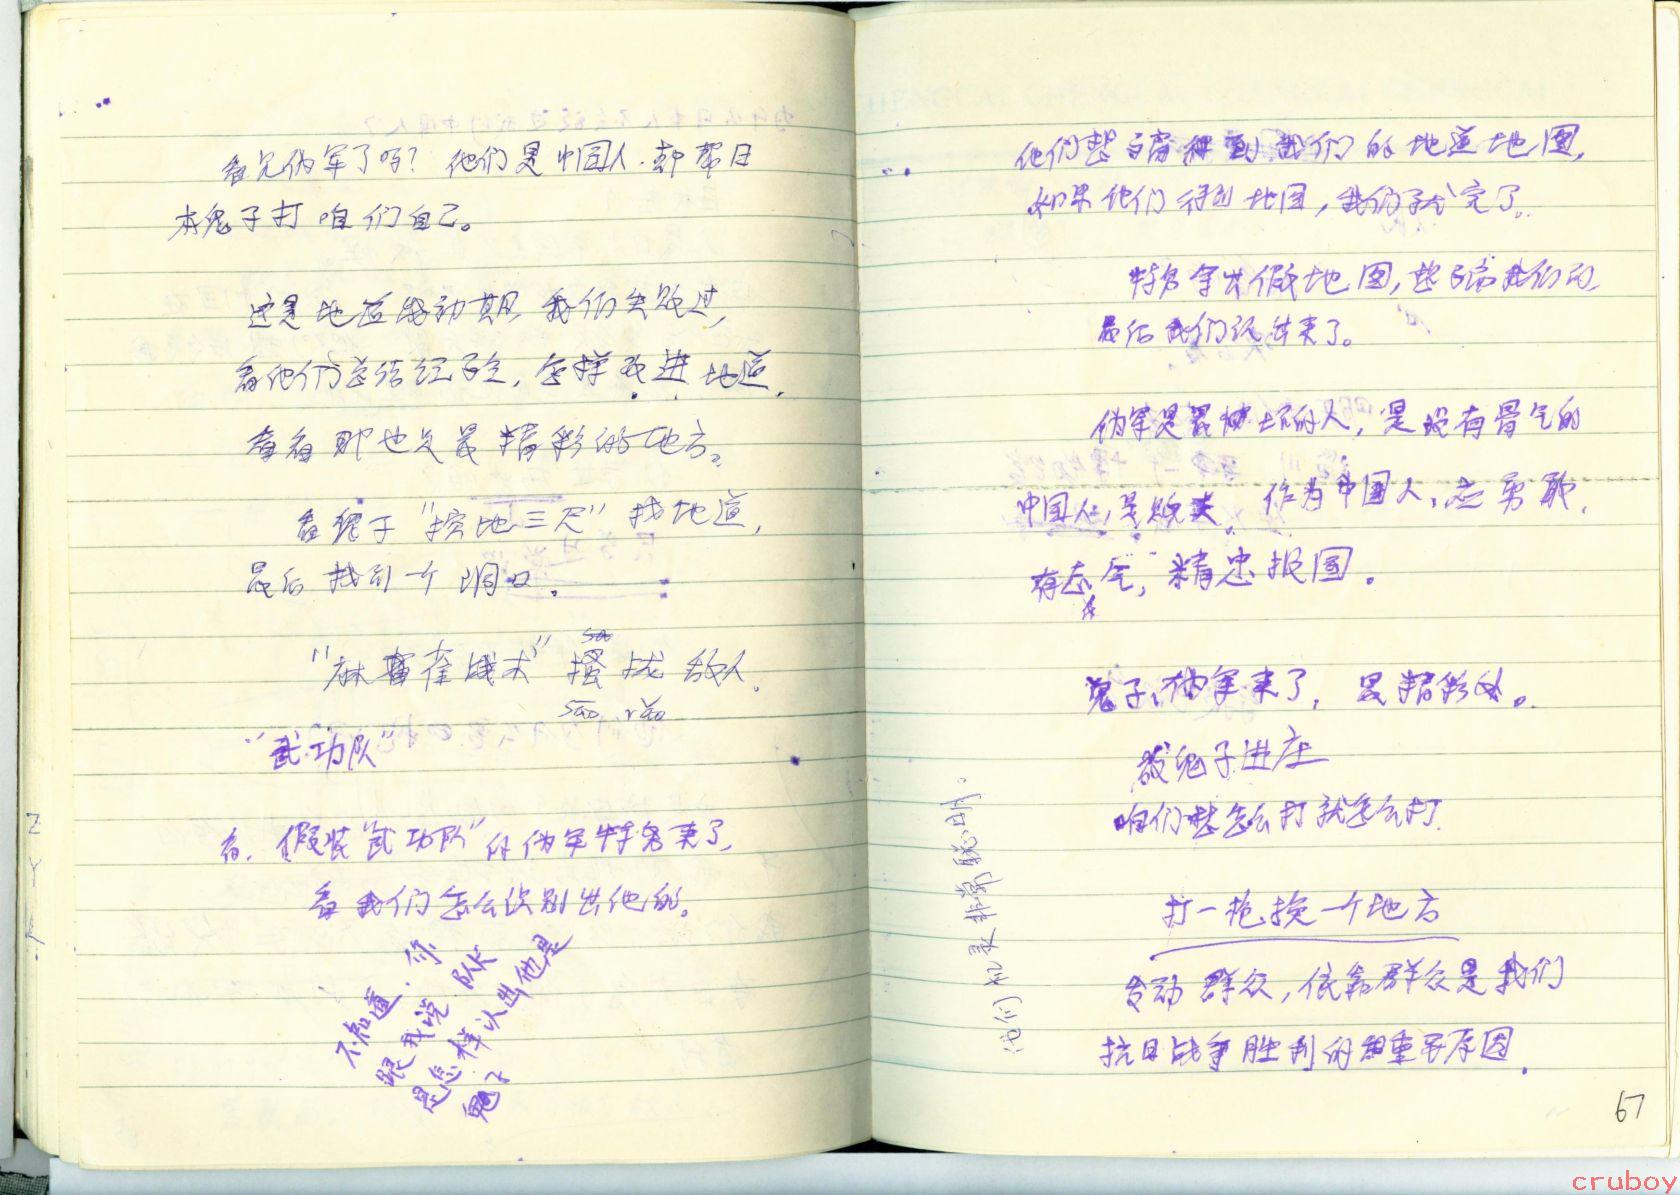 看见伪军了吗？他们是中国人.却帮日
本鬼子打咱们自己。
这是地道战初期，我们失败过，
看他们总结经验，怎样改进地道，
看看那也是最精彩的地方。
看鬼子“挖地三尺”找地道，
最后找到一个洞口。
“麻雀战术”搔扰敌人，
sāo rǎo
“武功队”
看，假装“武功队”的伪军特务来了，
看我们怎么识别出他的。
不知道，你
跟我说 队长
是怎样认出他是
鬼子
他们想骗得到我们的地道地图，
如果他们得到地图，我们就完了。
特务拿出假地图，想骗我们的，
最后我们识出来了。
伪军是最坏的人，是没有骨气的
中国人，是败类。作为中国人，应勇敢，
有志气，精忠报国。
鬼子、伪军来了，最精彩处。
放鬼子进庄
咱们想怎么打就怎么打
打一枪换一个地方
发动群众，依靠群众是我们
抗日战争胜利的重要原因.
他们机灵非常聪明。
Z
Y
67
cruboy